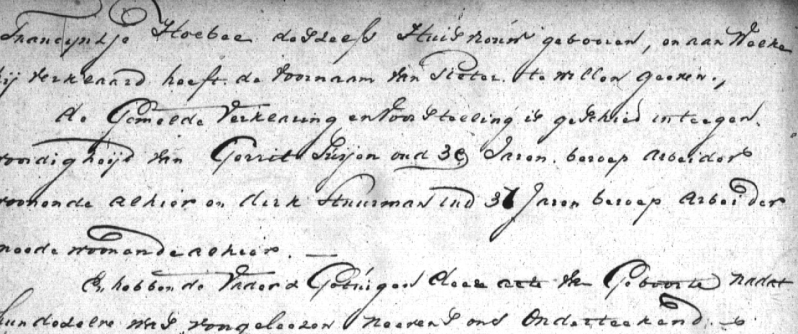 Francyntje Hoebee deszelfs Huisvrouw gebooren, en aan Welke
hij verklaard heeft de voornaam van Pieter te willen geeven.,
de Gemelde Verklaaring en Voorstelling is geschied in teegen,
woordigheijd van Gerrit oud 39 Jaren beroep arbeider
woonende alhier en dirk Stuurman oud 36 Jaren beroep Arbeider
meede woonende alhier. —
En hebben de Vader & Getuigen deeze acte van Geboorte nadat
hun dezelve was voorgeleezen neevens ons Onderteekend.